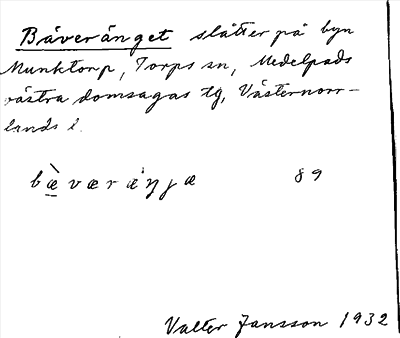 Bäveränget slåtter på byn
Munktorp, Torps sn, Medelpads
västra domsagas tg, Västernorr-
lands l.
bæ̀væræŋjæ 89
Valter Jansson 1932